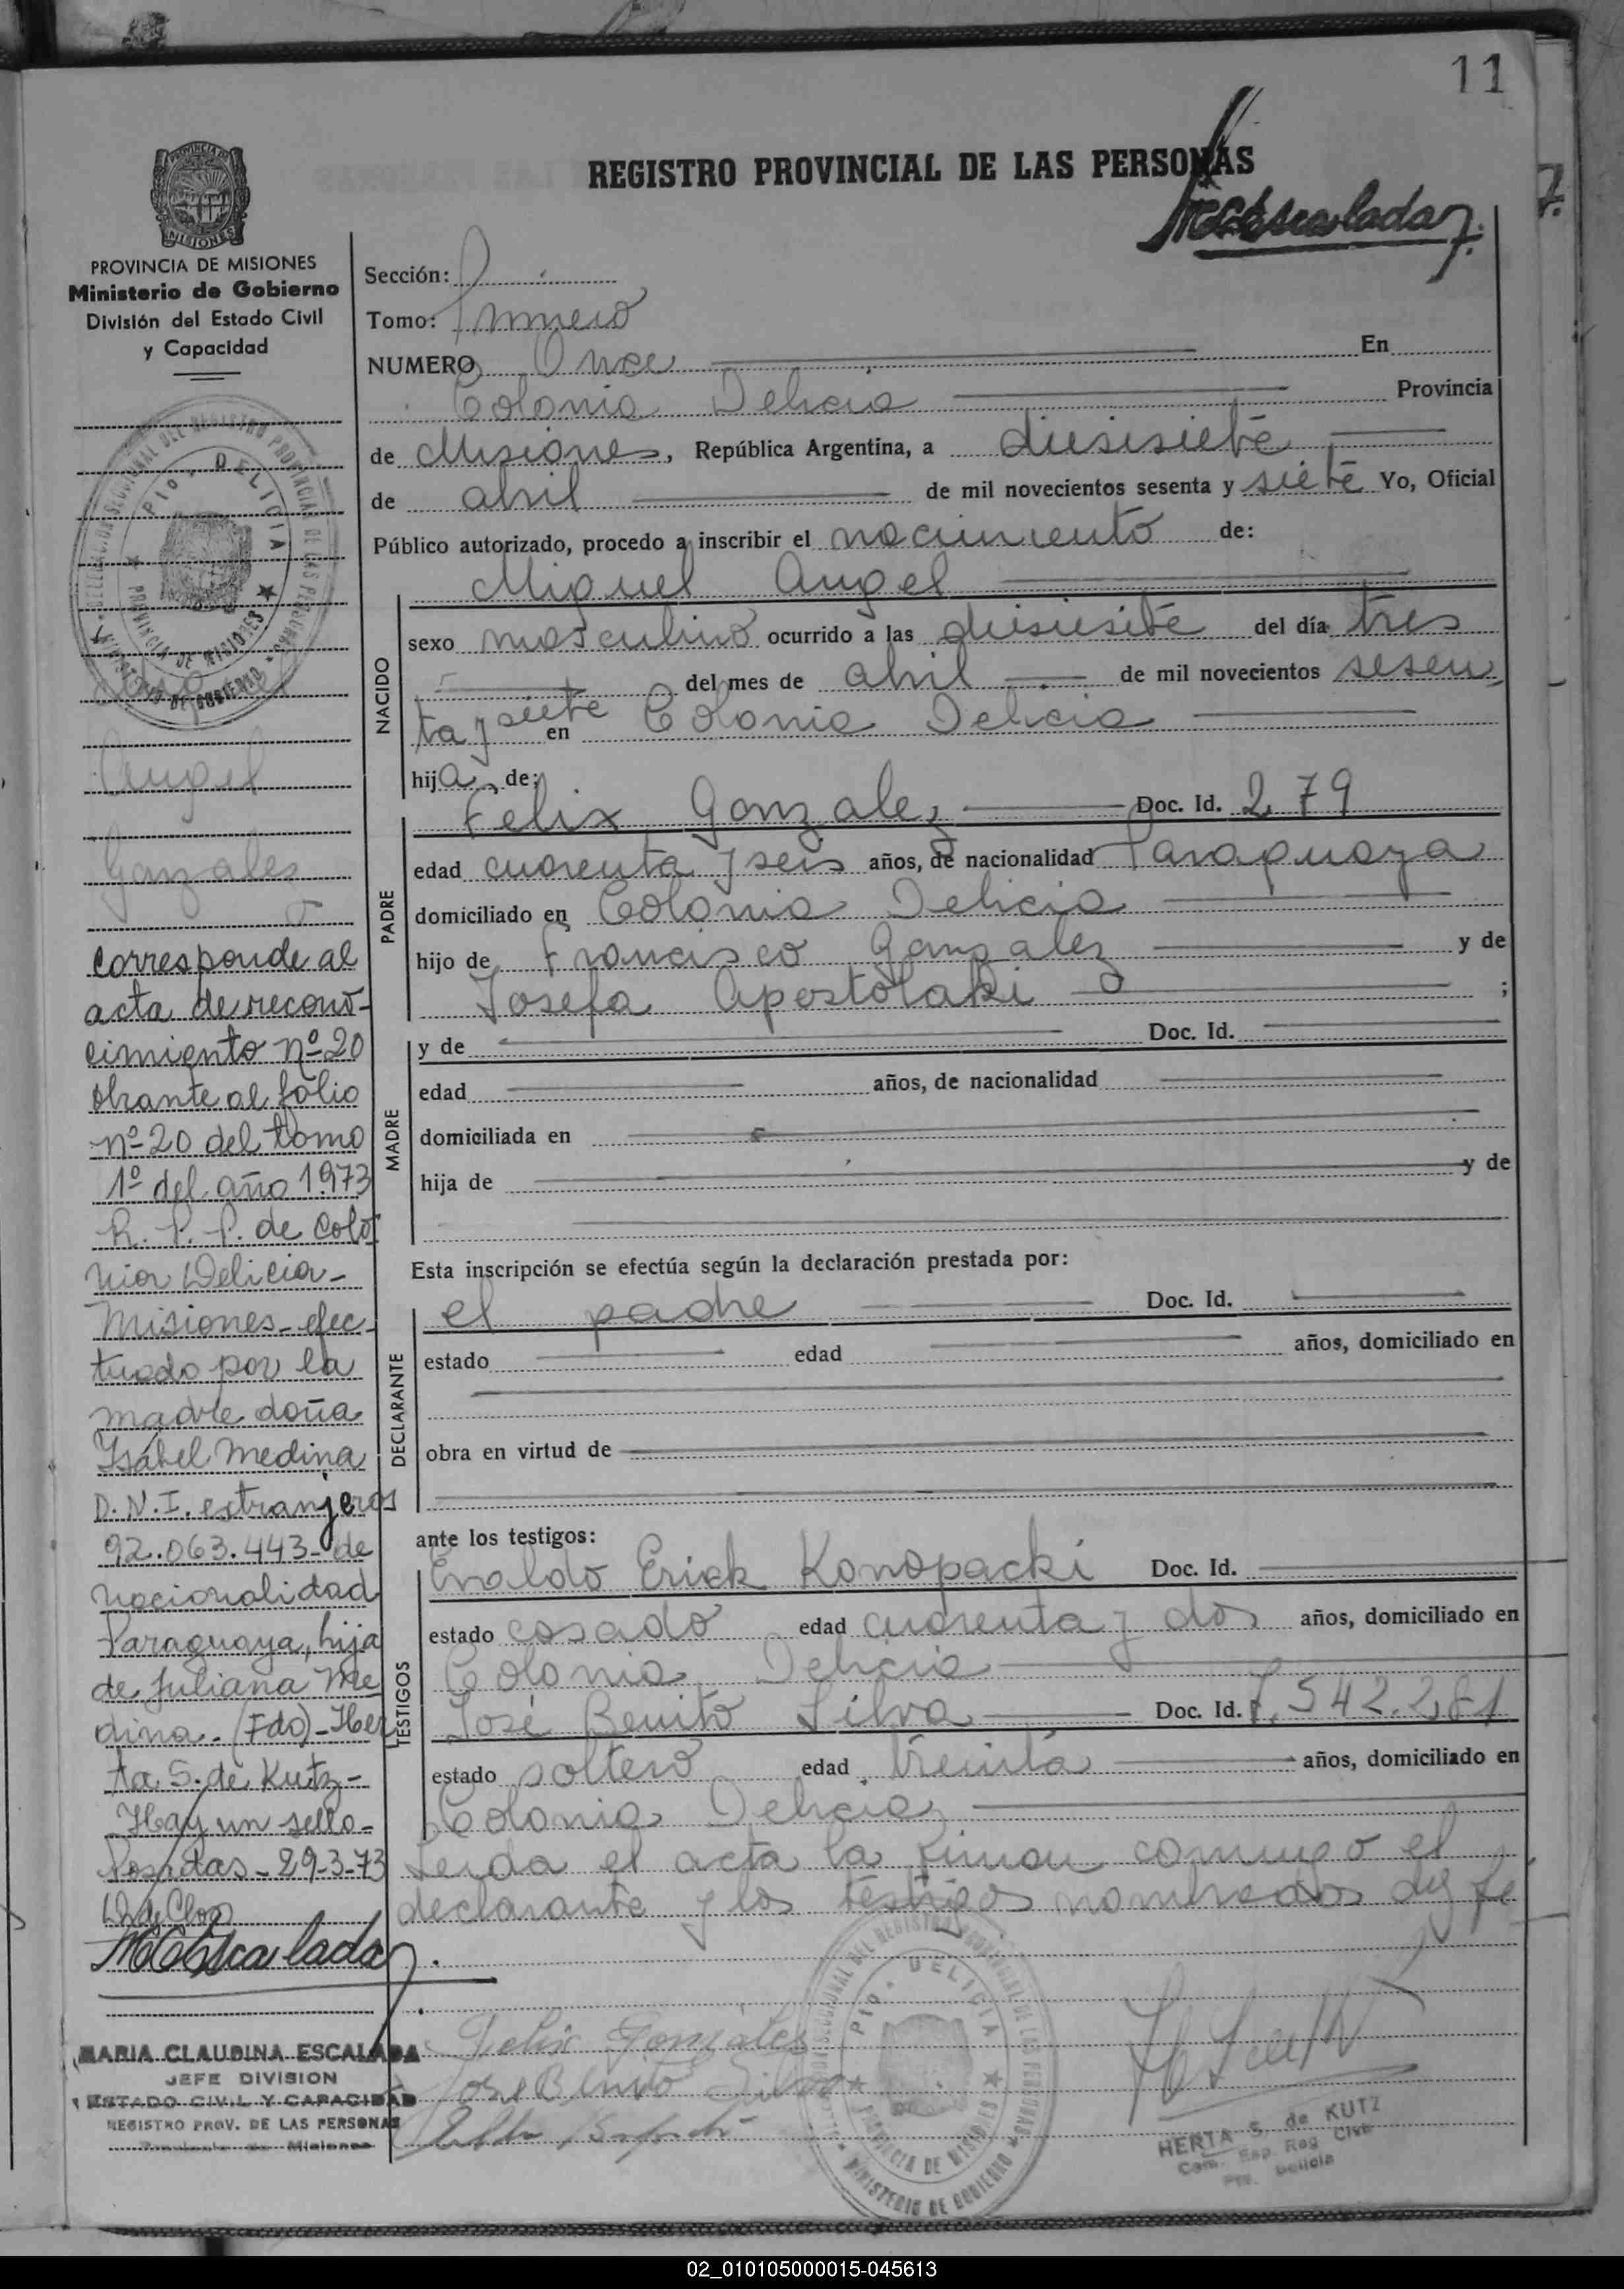 11
REGISTRO PROVINCIAL DE LAS PERSONAS
MCEscalada
PROVINCIA DE MISIONES
Ministerio de Gobierno
División del Estado Civil
y Capacidad
Sección:
Tomo: Primero
NUMERO Once En
Colonia Delicia Provincia
de Misiones, República Argentina, a diesisiete
de abril de mil novecientos sesenta y siete Yo, Oficial
Público autorizado, procedo a inscribir el nacimiento de:
Miguel Angel
NACIDO
sexo masculino ocurrido a las diesisiete del día tres
del mes de abril de mil novecientos sesen
ta y siete en Colonia Delicia
hija de:
PADRE
Felix Gonzalez Doc. Id. 279
edad cuarenta y seis años, de nacionalidad Paraguaya
domiciliado en Colonia Delicia
hijo de Francisco Gonzalez y de
Josefa Apostolaki ;
MADRE
y de Doc. Id.
edad años, de nacionalidad
domiciliada en
hija de y de
Esta inscripción se efectúa según la declaración prestada por:
DECLARANTE
el padre Doc. Id.
estado edad años, domiciliado en
obra en virtud de
ante los testigos:
TESTIGOS
Eraldo Erick Konopacki Doc. Id.
estado casado edad cuarenta y dos años, domiciliado en
Colonia Delicia
José Benito Silva Doc. Id. 7.542.281
estado soltero edad treinta años, domiciliado en
Colonia Delicia
Leida el acta la firman conmigo el
declarante y los testigos nombrados doy fe
Felix Gonzales
Jose Benito Silva
HERTA S. de KUTZ
Reg Civil
Delicia
DELEGACION SECCIONAL DEL REGISTRO PROVINCIAL DE LAS PERSONAS
PTO. DELICIA
PROVINCIA DE MISIONES
MINISTERIO DE GOBIERNO
Angel
Gonzales
Corresponde al
acta de recono-
cimiento nº 20
obrante al folio
nº 20 del tomo
1º del año 1973
R. P. P. de Colo
nia Delicia-
Misiones-efec-
tuado por la
madre doña
Ysabel Medina
D.N.I. extranjeros
92.063.443- de
nacionalidad
Paraguaya, hija
de Juliana Me
dina. (Fdo)-Her
ta S. de Kutz-
Hay un sello-
Posadas-29-3-73
MCEscalada
MARIA CLAUDINA ESCALADA
JEFE DIVISION
ESTADO CIVIL Y CAPACIDAD
REGISTRO PROV. DE LAS PERSONAS
Provincia de Misiones
02_010105000015-045613